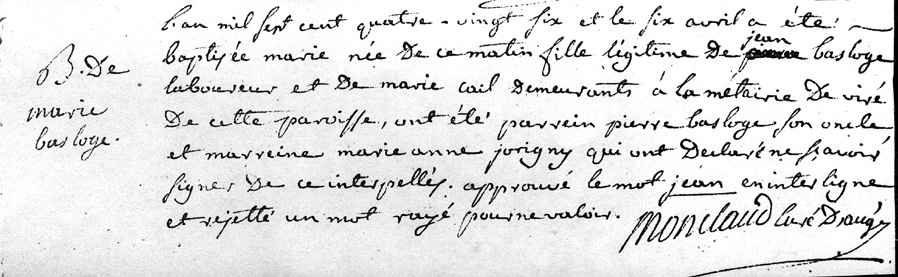 L'an mil sept cent quatre-vingt six et le six avril a été
baptisée marie née De ce matin fille légitime De jean basloge
B. De
marie
basloge.
laboureur et De marie cail Demeurants à la métairie De viré
De cette paroisse, ont été parrein pierre basloge son oncle
et marreine marie anne jorigny qui ont Declaré ne sçavoir
signer De ce interpellés. approuvé le mot jean en interligne
et rejetté un mot rayé pour ne valoir. Monclaud Curé D'augy